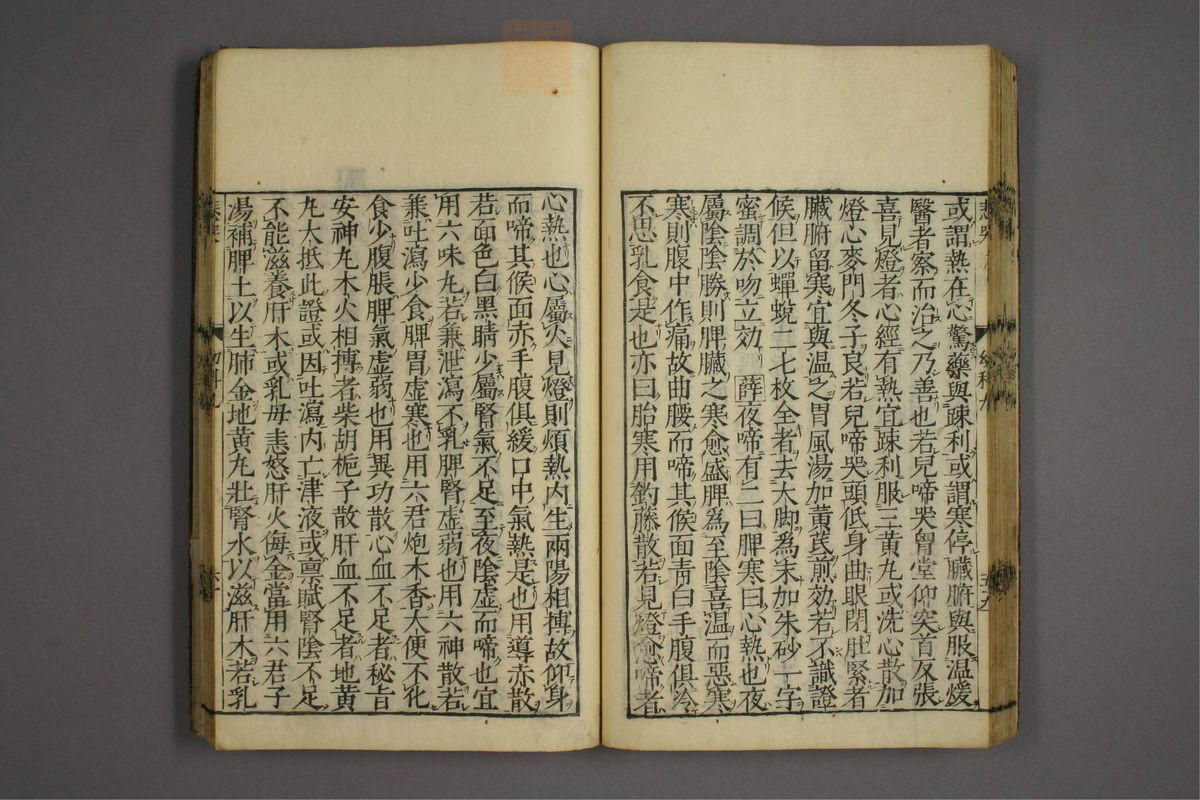 或謂熱在心驚藥與疎利或謂寒停臟腑與服温煖
醫者察而治之乃善也若兒啼哭胷堂仰突首反張
喜見燈者心經有熱宜疎利服三黄丸或洗心散加
燈心麥門冬子良若兒啼哭頭低身曲眼閉肚緊者
臟腑留寒宜與温之胃風湯加黄芪煎効若不識證
候但以蟬蛻二七枚全者去大脚為末加朱砂一字
蜜調於吻立効薛夜啼有二曰脾寒曰心熱也夜
屬陰陰勝則脾臟之寒愈盛脾為至陰喜温而惡寒
寒則腹中作痛故曲腰而啼其候面青白手腹俱冷
不思乳食是也亦曰胎寒用鈎藤散若見燈愈啼者
心熱也心屬火見燈則煩熱内生兩陽相搏故仰身
而啼其候面赤手腹俱緩口中氣熱是也用導赤散
若面色白黑睛少屬腎氣不足至夜陰虚而啼也宜
用六味丸若兼泄瀉不乳脾腎虚弱也用六神散若
兼吐瀉少食脾胃虚寒也用六君炮木香大便不化
食少腹脹脾氣虚弱也用異功散心血不足者秘旨
安神丸木火相搏者柴胡梔子散肝血不足者地黄
丸大抵此證或因吐瀉内亡津液或禀賦腎陰不足
不能滋養肝木或乳母恚怒肝火侮金當用六君子
湯補脾土以生肺金地黄丸壯腎水以滋肝木若乳